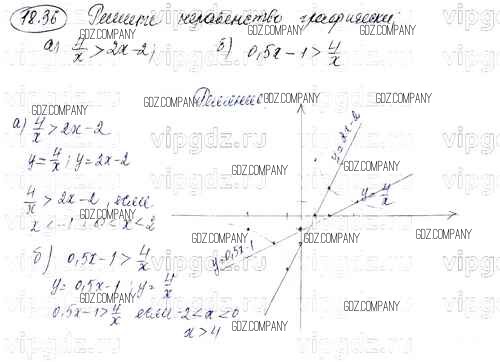 18.36 Решите неравенство графически:
а) 4/x > 2x-2; б) 0,5x-1 > 4/x
Решение:
а) 4/x > 2x-2
y = 4/x; y = 2x-2
4/x > 2x-2, если
x < -1; 0 < x < 2
б) 0,5x-1 > 4/x
y = 0,5x-1; y = 4/x
0,5x-1 > 4/x если -2 < x < 0
x > 4
y=2x-2
y=4/x
y=0,5x-1
GDZ.COMPANY
vipgdz.ru